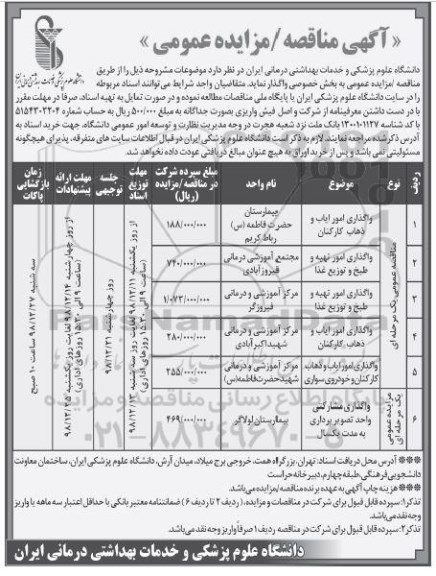 « آگهی مناقصه /مزایده عمومی »
دانشگاه علوم پزشکی و خدمات بهداشتی درمانی ایران در نظر دارد موضوعات مشروحه ذیل را از طریق
مناقصه /مزایده عمومی به بخش خصوصی واگذار نماید. متقاضیان واجد شرایط می توانند اسناد مربوطه
را در سایت دانشگاه علوم پزشکی ایران یا پایگاه ملی مناقصات مطالعه نموده و در صورت تمایل به تهیه اسناد، صرفا در مهلت مقرر
با در دست داشتن معرفینامه از شرکت و اصل فیش واریزی بصورت جداگانه به مبلغ ۵۰۰/۰۰۰ ریال به حساب شماره ۵۱۵۴۳۰۳۲۰۴
با کد شناسه ۱۳۰۰۰۱۰۱۱۲۷ بانک ملت نزد شعبه هجرت در وجه مدیریت نظارت و توسعه امور عمومی دانشگاه، جهت خرید اسناد به
آدرس ذکرشده مراجعه نمایند. لازم به ذکر است دانشگاه علوم پزشکی ایران در قبال اطلاعات سایت های متفرقه، پذیرای هیچگونه
مسئولیتی نمی باشد و پس از خرید اوراق به هیچ عنوان مبالغ دریافتی عودت داده نخواهد شد.
ردیف نوع موضوع نام واحد مبلغ سپرده شرکت در مناقصه/مزایده (ریال) مهلت توزیع اسناد جلسه توجیهی مهلت ارائه پیشنهادات زمان بازگشایی پاکات
مناقصه عمومی یک مرحله ای
۱ واگذاری امور ایاب و ذهاب کارکنان بیمارستان حضرت فاطمه (س) رباط کریم ۱۸۸/۰۰۰/۰۰۰
۲ واگذاری امور تهیه و طبخ و توزیع غذا مجتمع آموزشی درمانی فیروزآبادی ۷۴۰/۰۰۰/۰۰۰
۳ واگذاری امور تهیه و طبخ و توزیع غذا مرکز آموزشی و درمانی فیروزگر ۱/۰۷۳/۰۰۰/۰۰۰
۴ واگذاری امور ایاب و ذهاب کارکنان مرکز آموزشی و درمانی شهیداکبرآبادی ۲۸۰/۰۰۰/۰۰۰
۵ واگذاری امور ایاب وذهاب کارکنان وخودروی سواری مرکز آموزشی و درمانی شهیدحضرت فاطمه(س) ۲۵۵/۰۰۰/۰۰۰
مزایده عمومی یک مرحله ای
۶ واگذاری مشارکتی واحد تصویر برداری به مدت یکسال بیمارستان لولاگر ۴۶۹/۰۰۰/۰۰۰
از روز یکشنبه ۹۸/۱۲/۱۱ لغایت روز سه شنبه ۹۸/۱۲/۱۳ (ساعت ۹ الی ۱۵:۳۰ روزهای اداری)
روز چهارشنبه ۹۸/۱۲/۲۱
از روز چهارشنبه ۹۸/۱۲/۱۴ لغایت روز یکشنبه ۹۸/۱۲/۲۵ (ساعت ۹ الی ۱۵:۳۰ روزهای اداری)
سه شنبه ۹۸/۱۲/۲۷ ساعت ۱۰ صبح
ParsNamadData
۰۲۱-۸۸۳۴۹۶۷۰
*** آدرس محل دریافت اسناد: تهران، بزرگراه همت، خروجی برج میلاد، میدان آرش، دانشگاه علوم پزشکی ایران، ساختمان معاونت
دانشجویی فرهنگی،طبقه چهارم، دبیرخانه حراست
*** هزینه چاپ آگهی به عهده برنده مناقصه/مزایده می باشد.
تذکر۱: سپرده قابل قبول برای شرکت در مناقصات و مزایده، ( ردیف ۲ تا ردیف ۶ ) ضمانتنامه معتبر بانکی با حداقل اعتبار سه ماهه یا واریز
وجه نقد می باشد.
تذکر۲: سپرده قابل قبول برای شرکت در مناقصه ردیف ۱ صرفاً واریز وجه نقد می باشد.
دانشگاه علوم پزشکی و خدمات بهداشتی درمانی ایران